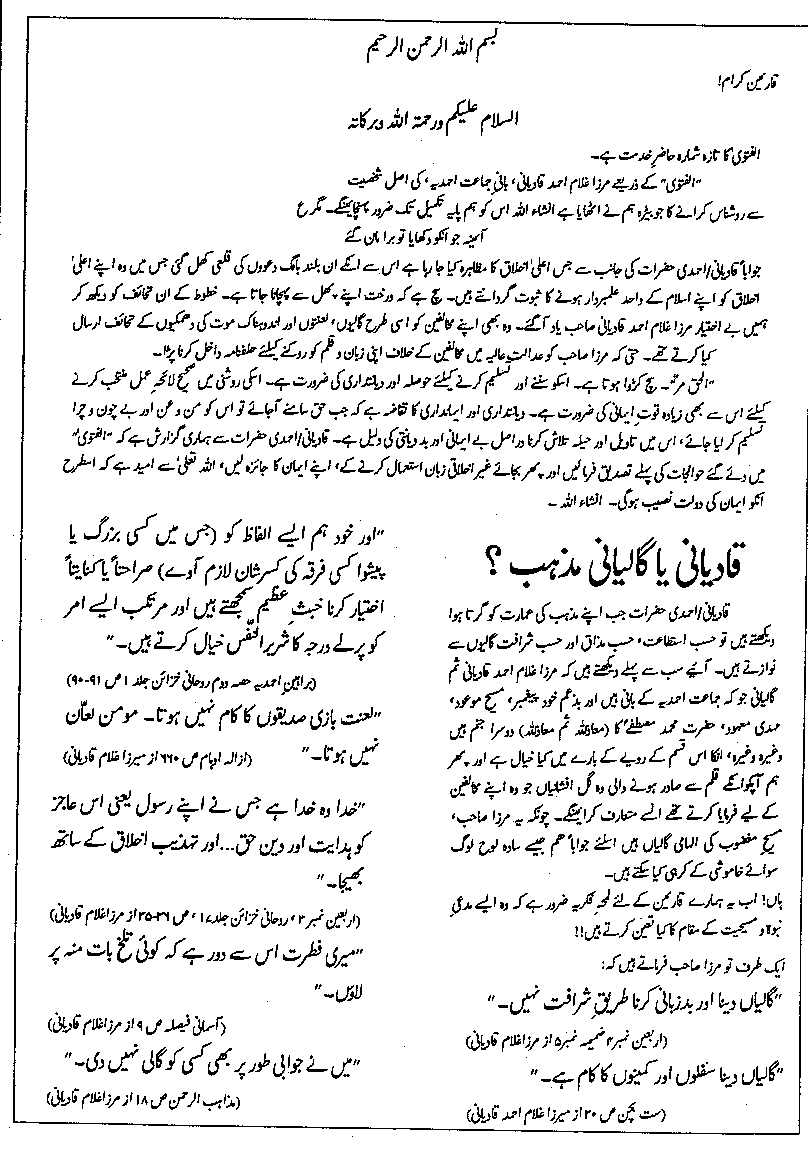 بسم اللہ الرحمن الرحیم
قارئین کرام!
السلام علیکم ورحمۃ اللہ وبرکاتہ
الفتویٰ کا تازہ شمارہ حاضر خدمت ہے۔
"الفتویٰ" کے ذریعے مرزا غلام احمد قادیانی، بانیٔ جماعت احمدیہ، کی اصل شخصیت
سے روشناس کرانے کا جو بیڑہ ہم نے اٹھایا ہے انشاء اللہ اس کو ہم پایہ تکمیل تک ضرور پہنچائینگے۔ مگر ع
آئینہ جو انکو دکھایا تو برا مان گئے
جواباً قادیانی/احمدی حضرات کی جانب سے جس اعلیٰ اخلاق کا مظاہرہ کیا جا رہا ہے اس سے انکے ان بلند بانگ دعووں کی قلعی کھل گئی جس میں وہ اپنے اعلیٰ
اخلاق کو اپنے اسلام کے واحد علمبردار ہونے کا ثبوت گردانتے ہیں۔ سچ ہے کہ درخت اپنے پھل سے پہچانا جاتا ہے۔ خطوط کے ان تحائف کو دیکھ کر
ہمیں بے اختیار مرزا غلام احمد قادیانی صاحب یاد آگئے۔ وہ بھی اپنے مخالفین کو اسی طرح گالیوں، لعنتوں اور اندوہناک موت کی دھمکیوں کے تحائف ارسال
کیا کرتے تھے۔ حتیٰ کہ مرزا صاحب کو عدالت عالیہ میں مخالفین کے خلاف اپنی زبان و قلم کو روکنے کیلئے حلفنامہ داخل کرنا پڑا۔
"الحق مرٌّ۔ سچ کڑوا ہوتا ہے۔ اسکو سننے اور تسلیم کرنے کیلئے حوصلہ اور دیانتداری کی ضرورت ہے۔ اسکی روشنی میں صحیح لائحہ عمل منتخب کرنے
کیلئے اس سے بھی زیادہ قوت ایمانی کی ضرورت ہے۔ دیانتداری اور ایمانداری کا تقاضہ ہے کہ جب حق سامنے آجائے تو اس کو من و عن اور بے چون و چرا
تسلیم کر لیا جائے، اس میں تاویل اور حیلہ تلاش کرنا دراصل بے ایمانی اور بد دیانتی کی دلیل ہے۔ قادیانی/احمدی حضرات سے ہماری گزارش ہے کہ "الفتویٰ"
میں دئے گئے حوالہجات کی پہلے تصدیق فرمالیں اور پھر بجائے غیر اخلاقی زبان استعمال کرنے کے، اپنے ایمان کا جائزہ لیں، اللہ تعالیٰ سے امید ہے کہ اسطرح
انکو ایمان کی دولت نصیب ہوگی۔ انشاء اللہ۔
قادیانی یا گالیانی مذہب ؟
قادیانی/احمدی حضرات جب اپنے مذہب کی عمارت کو گرتا ہوا
دیکھتے ہیں تو حسب استطاعت، حسب مذاق اور حسب شرافت گالیوں سے
نوازتے ہیں۔ آئیے سب سے پہلے دیکھتے ہیں کہ مرزا غلام احمد قادیانی ثم
گالیانی جو کہ جماعت احمدیہ کے بانی ہیں اور بذعم خود پیغمبر، مسیح موعود،
مہدی معہود، حضرت محمد مصطفےٰؐ کا (معاذاللہ ثم معاذاللہ) دوسرا جنم ہیں
وغیرہ وغیرہ، انکا اس قسم کے رویے کے بارے میں کیا خیال ہے اور پھر
ہم آپکو انکے قلم سے صادر ہونے والی وہ گل افشانیاں جو وہ اپنے مخالفین
کے لیے فرمایا کرتے تھے انسے متعارف کرائینگے۔ چونکہ یہ مرزا صاحب،
مسیح مغضوب کی الہامی گالیاں ہیں اسلئے جواباً ہم جیسے سادہ لوح لوگ
سوائے خاموشی کے کر ہی کیا سکتے ہیں۔
ہاں! اب یہ ہمارے قارئین کے لئے لمحۂ فکریہ ضرور ہے کہ وہ ایسے مدعیٔ
نبوۃ و مسیحیت کے مقام کا کیا تعین کرتے ہیں!!
ایک طرف تو مرزا صاحب فرماتے ہیں کہ:
"گالیاں دینا اور بدزبانی کرنا طریق شرافت نہیں۔"
(اربعین نمبر ۴ ضمیمہ نمبر ۵ از مرزا غلام قادیانی)
"گالیاں دینا سفلوں اور کمینوں کا کام ہے۔"
(ست بچن ص ۲۰ از میرزا غلام احمد قادیانی)
"اور خود ہم ایسے الفاظ کو (جس میں کسی بزرگ یا
پیشوا کسی فرقہ کی کسرشان لازم آوے) صراحتاً یا کنایتاً
اختیار کرنا خبث عظیم سمجھتے ہیں اور مرتکب ایسے امر
کو پرلے درجہ کا شریر النفس خیال کرتے ہیں۔"
(براہین احمدیہ حصہ دوم روحانی خزائن جلد ۱ ص ۹۱-۹۰)
"لعنت بازی صدیقوں کا کام نہیں ہوتا۔ مومن لعّان
نہیں ہوتا۔" (ازالہ اوہام ص ۶۶۰ از میرزا غلام قادیانی)
"خدا وہ خدا ہے جس نے اپنے رسول یعنی اس عاجز
کو ہدایت اور دین حق...اور تہذیب اخلاق کے ساتھ
بھیجا۔"
(اربعین نمبر ۳، روحانی خزائن جلد ۱۷، ص ۳۶-۳۵ از مرزا غلام قادیانی)
"میری فطرت اس سے دور ہے کہ کوئی تلخ بات منہ پر
لاؤں۔"
(آسمانی فیصلہ ص ۹ از مرزا غلام قادیانی)
"میں نے جوابی طور پر بھی کسی کو گالی نہیں دی۔"
(مذاہب الرحمن ص ۱۸ از مرزا غلام قادیانی)